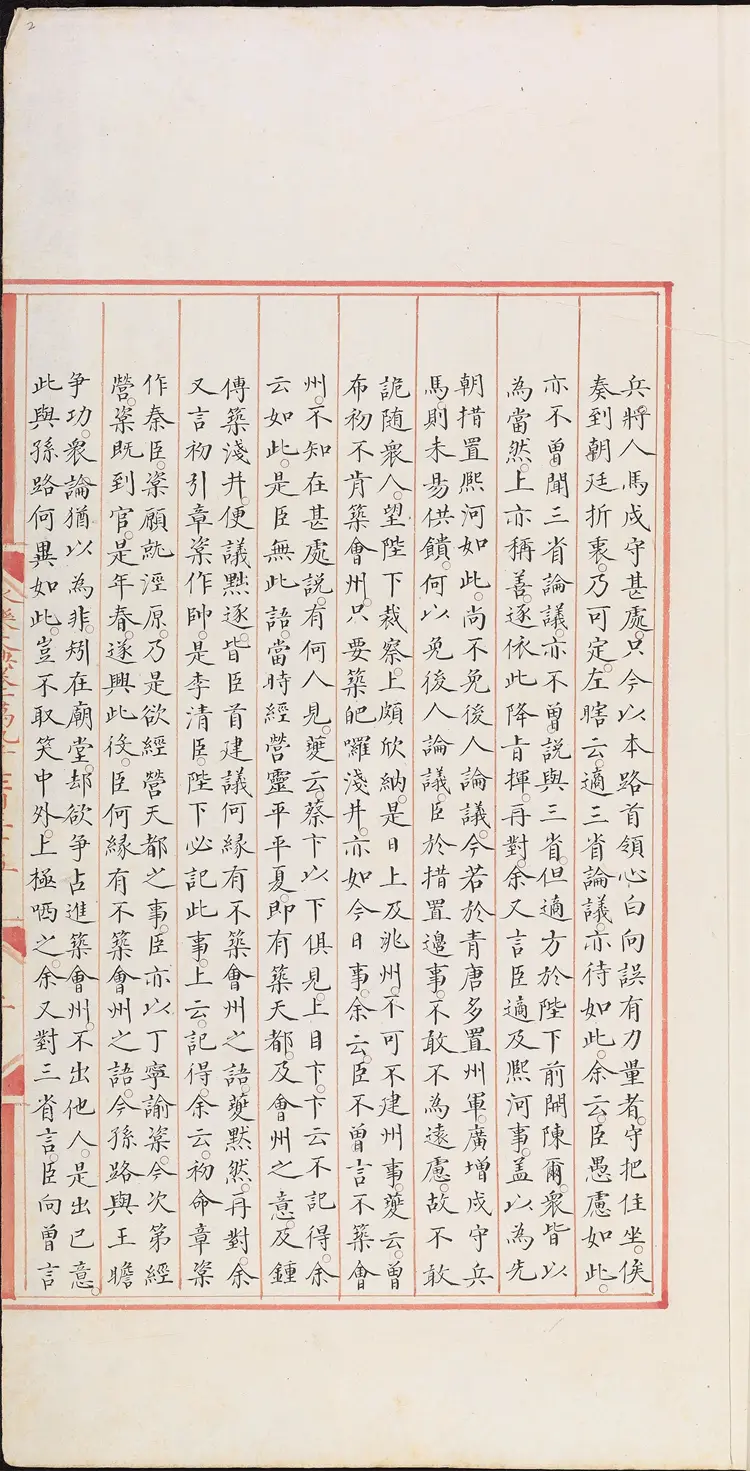 兵將人馬戍守甚處。只今以本路首領心白向誤有力量者。守把住坐。俟
奏到朝廷折衷。乃可定。左瞎云。適三省論議。亦待如此。余云。臣愚慮如此。
亦不曾聞三省論議。亦不曾說與三省。但適方於陛下前開陳爾。衆皆以
為當然。上亦稱善。逐依此降旨揮。再對。余又言臣適及熙河事。蓋以為先
朝措置熙河如此。尚不免後人論議。今若於青唐多置州軍。廣增戍守兵
馬。則未易供饋。何以免後人論議。臣於措置邊事。不敢不為遠慮。故不敢
詭隨衆人。望陛下裁察。上頗欣納。是日上及洮州。不可不建州事。夔云。曾
布初不肯築會州。只要築𠵽囉淺井。亦如今日事。余云。臣不曾言不築會
州。不知在甚處說。有何人見。夔云。蔡卞以下俱見。上目卞。卞云不記得。余
云如此。是臣無此語。當時經營靈平平夏。即有築天都。及會州之意。及鍾
傳築淺井。便議黜逐。皆臣首建議何緣有不築會州之語。夔默然。再對。余
又言初引章楶作帥。是李清臣。陛下必記此事。上云。記得。余云。初命章楶
作秦臣。楶願就涇原。乃是欲經營天都之事。臣亦以丁寧諭楶。今次第經
營。楶既到官。是年春。遂興此役。臣何緣有不築會州之語。今孫路與王瞻
争功。衆論猶以為非。矧在廟堂。却欲争占進築會州。不出他人。是出已意。
此與孫路何異如此。豈不取笑中外。上極哂之。余又對三省言。臣向曾言
2